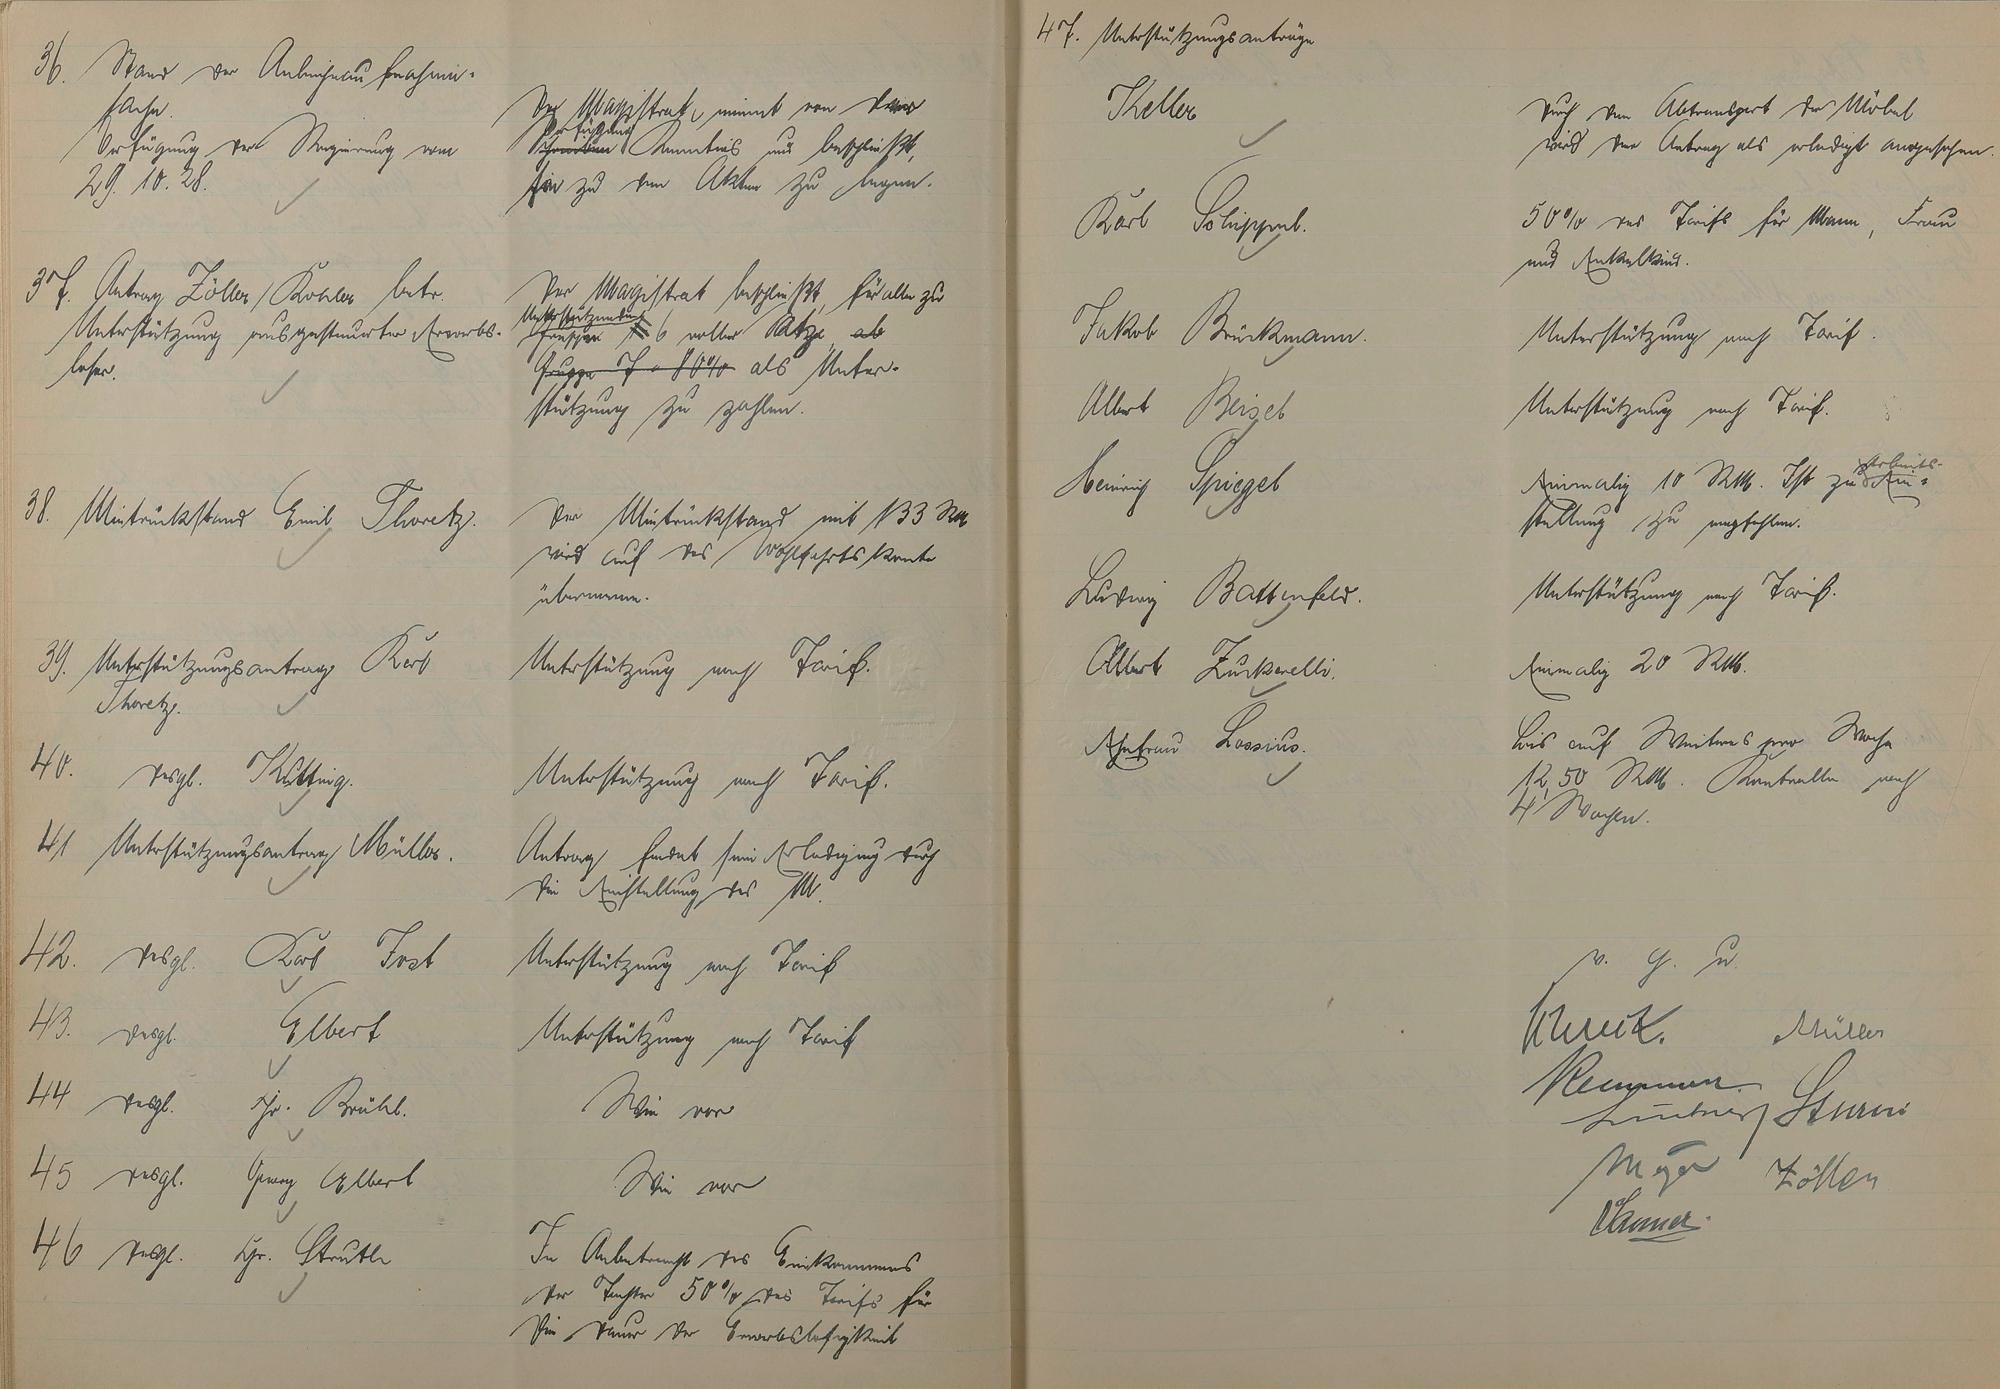 36. Stand der Anleiheaufnahme-
sache.
Verfügung der Regierung vom
29. 10. 28.
Der Magistrat nimmt von der
Verfügung
Schreiben Kenntnis und beschließt,
sie zu den Akten zu legen.
37. Antrag Zöller/Kohler betr.
Unterstützung ausgesteuerter Erwerbs-
loser.
Der Magistrat beschließt, für alle zu
Unterstützenden
Gruppen 6 voller Sätze ab
Gruppe 7 - 80% als Unter-
stützung zu zahlen.
38. Mietrückstand Emil Thoretz.
Der Mietrückstand mit 133 RM
wird auf das Wohlfahrtskonto
übernommen.
39. Unterstützungsantrag Karl
Thoretz.
Unterstützung nach Tarif.
40. desgl. Kuttnig.
Unterstützung nach Tarif.
41 Unterstützungsantrag Müller.
Antrag findet seine Erledigung durch
die Einstellung des M.
42. desgl. Karl Jost
Unterstützung nach Tarif
43. desgl. Elbert
Unterstützung nach Tarif
44 desgl. Hr. Brühl.
Wie vor
45 desgl. Georg Elbert
Wie vor
46 desgl. Hr. Struth
In Anbetracht des Einkommens
der Tochter 50% des Tarifs für
die Dauer der Erwerbslosigkeit
47. Unterstützungsanträge
Keller
Durch den Abtransport der Möbel
wird der Antrag als erledigt angesehen.
Karl Schippel.
50% des Tarifs für Mann, Frau
und Enkelkind.
Jakob Brückmann.
Unterstützung nach Tarif.
Albert Beisel
Unterstützung nach Tarif.
Heinrich Spiegel
Einmalig 10 RM. Ist zu Arbeits-
Ein-
stellung zu empfehlen.
Ludwig Battenfeld.
Unterstützung nach Tarif.
Albert Zuckerelli.
Einmalig 20 RM.
Ehefrau Lossius.
bis auf Weiteres pro Woche
12,50 RM. Kontrolle nach
4 Wochen.
v. g. u.
Müller
Lindner Sturm
Meyer Zöller